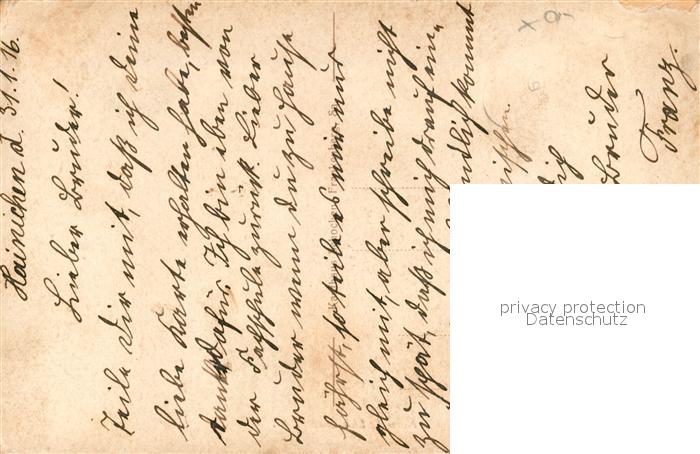 Hainichen d. 31.1.16.
Lieber Bruder!
Teile Dir mit, daß ich Deine
liebe Karte erhalten habe, besten
Dank dafür. Ich bin eben von
der Fachschule zurück. Lieber
Bruder wenn Du zu Hause
fährst, so teile es mir nur
gleich mit, aber schreibe nicht
zu spät, daß ich mich drauf ein-
kommt
Bruder
Franz.
privacy protection
Datenschutz